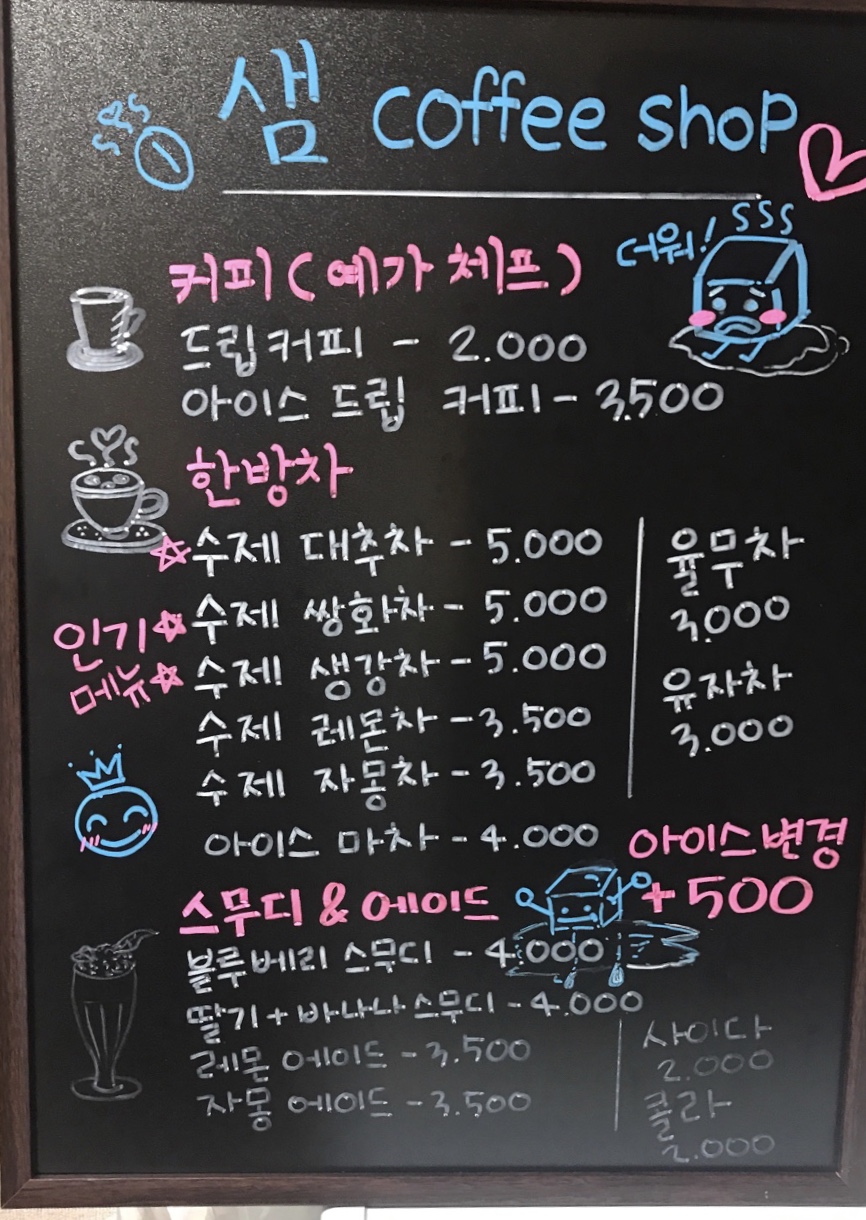 샘 coffee shop
더워! SSS
커피 (예가 체프)
드립커피 - 2.000
아이스 드립 커피 - 3.500
한방차
수제 대추차 - 5.000
인기메뉴
수제 쌍화차 - 5.000
수제 생강차 - 5.000
수제 레몬차 - 3.500
수제 자몽차 - 3.500
아이스 마차 - 4.000
율무차
3.000
유자차
3.000
아이스변경
+500
스무디 & 에이드
블루베리 스무디 - 4.000
딸기+바나나스무디 - 4.000
레몬 에이드 - 3.500
자몽 에이드 - 3.500
사이다
2.000
콜라
2.000